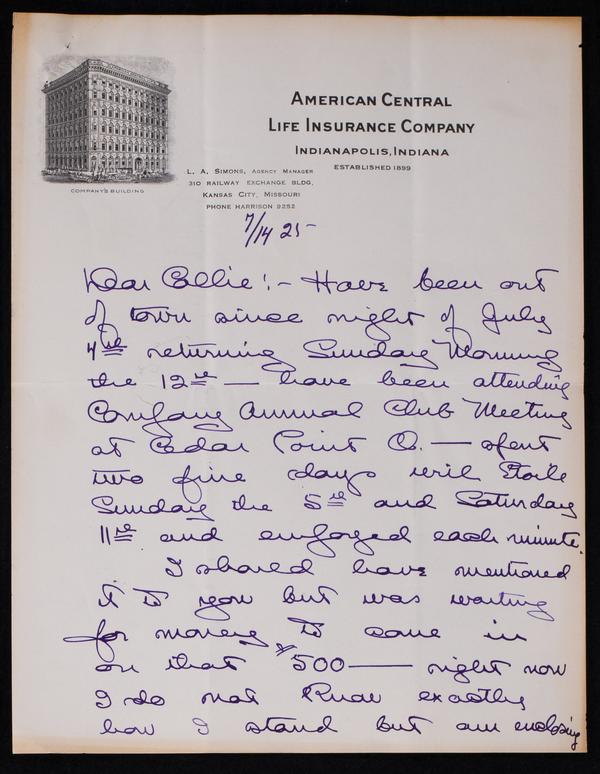 AMERICAN CENTRAL
LIFE INSURANCE COMPANY
INDIANAPOLIS, INDIANA
ESTABLISHED 1899
COMPANY'S BUILDING
L. A. SIMONS, AGENCY MANAGER
310 RAILWAY EXCHANGE BLDG.
KANSAS CITY, MISSOURI
PHONE HARRISON 9252
7/14 25-
Dear Collie! - Have been out
of town since night of July
4th returning Sunday Morning
the 12th — have been attending
Company Annual Club Meeting
at Cedar Point O. — spent
two fine days with
Sunday the 5th and Saturday
11th and enjoyed each minute.
I should have mentioned
it to you but was waiting
for money to come in
on that $500 — right now
I do not know exactly
how I stand but am enclosing